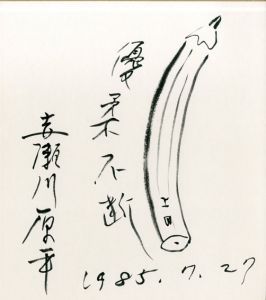 優柔不断
赤瀬川原平
1985.7.27